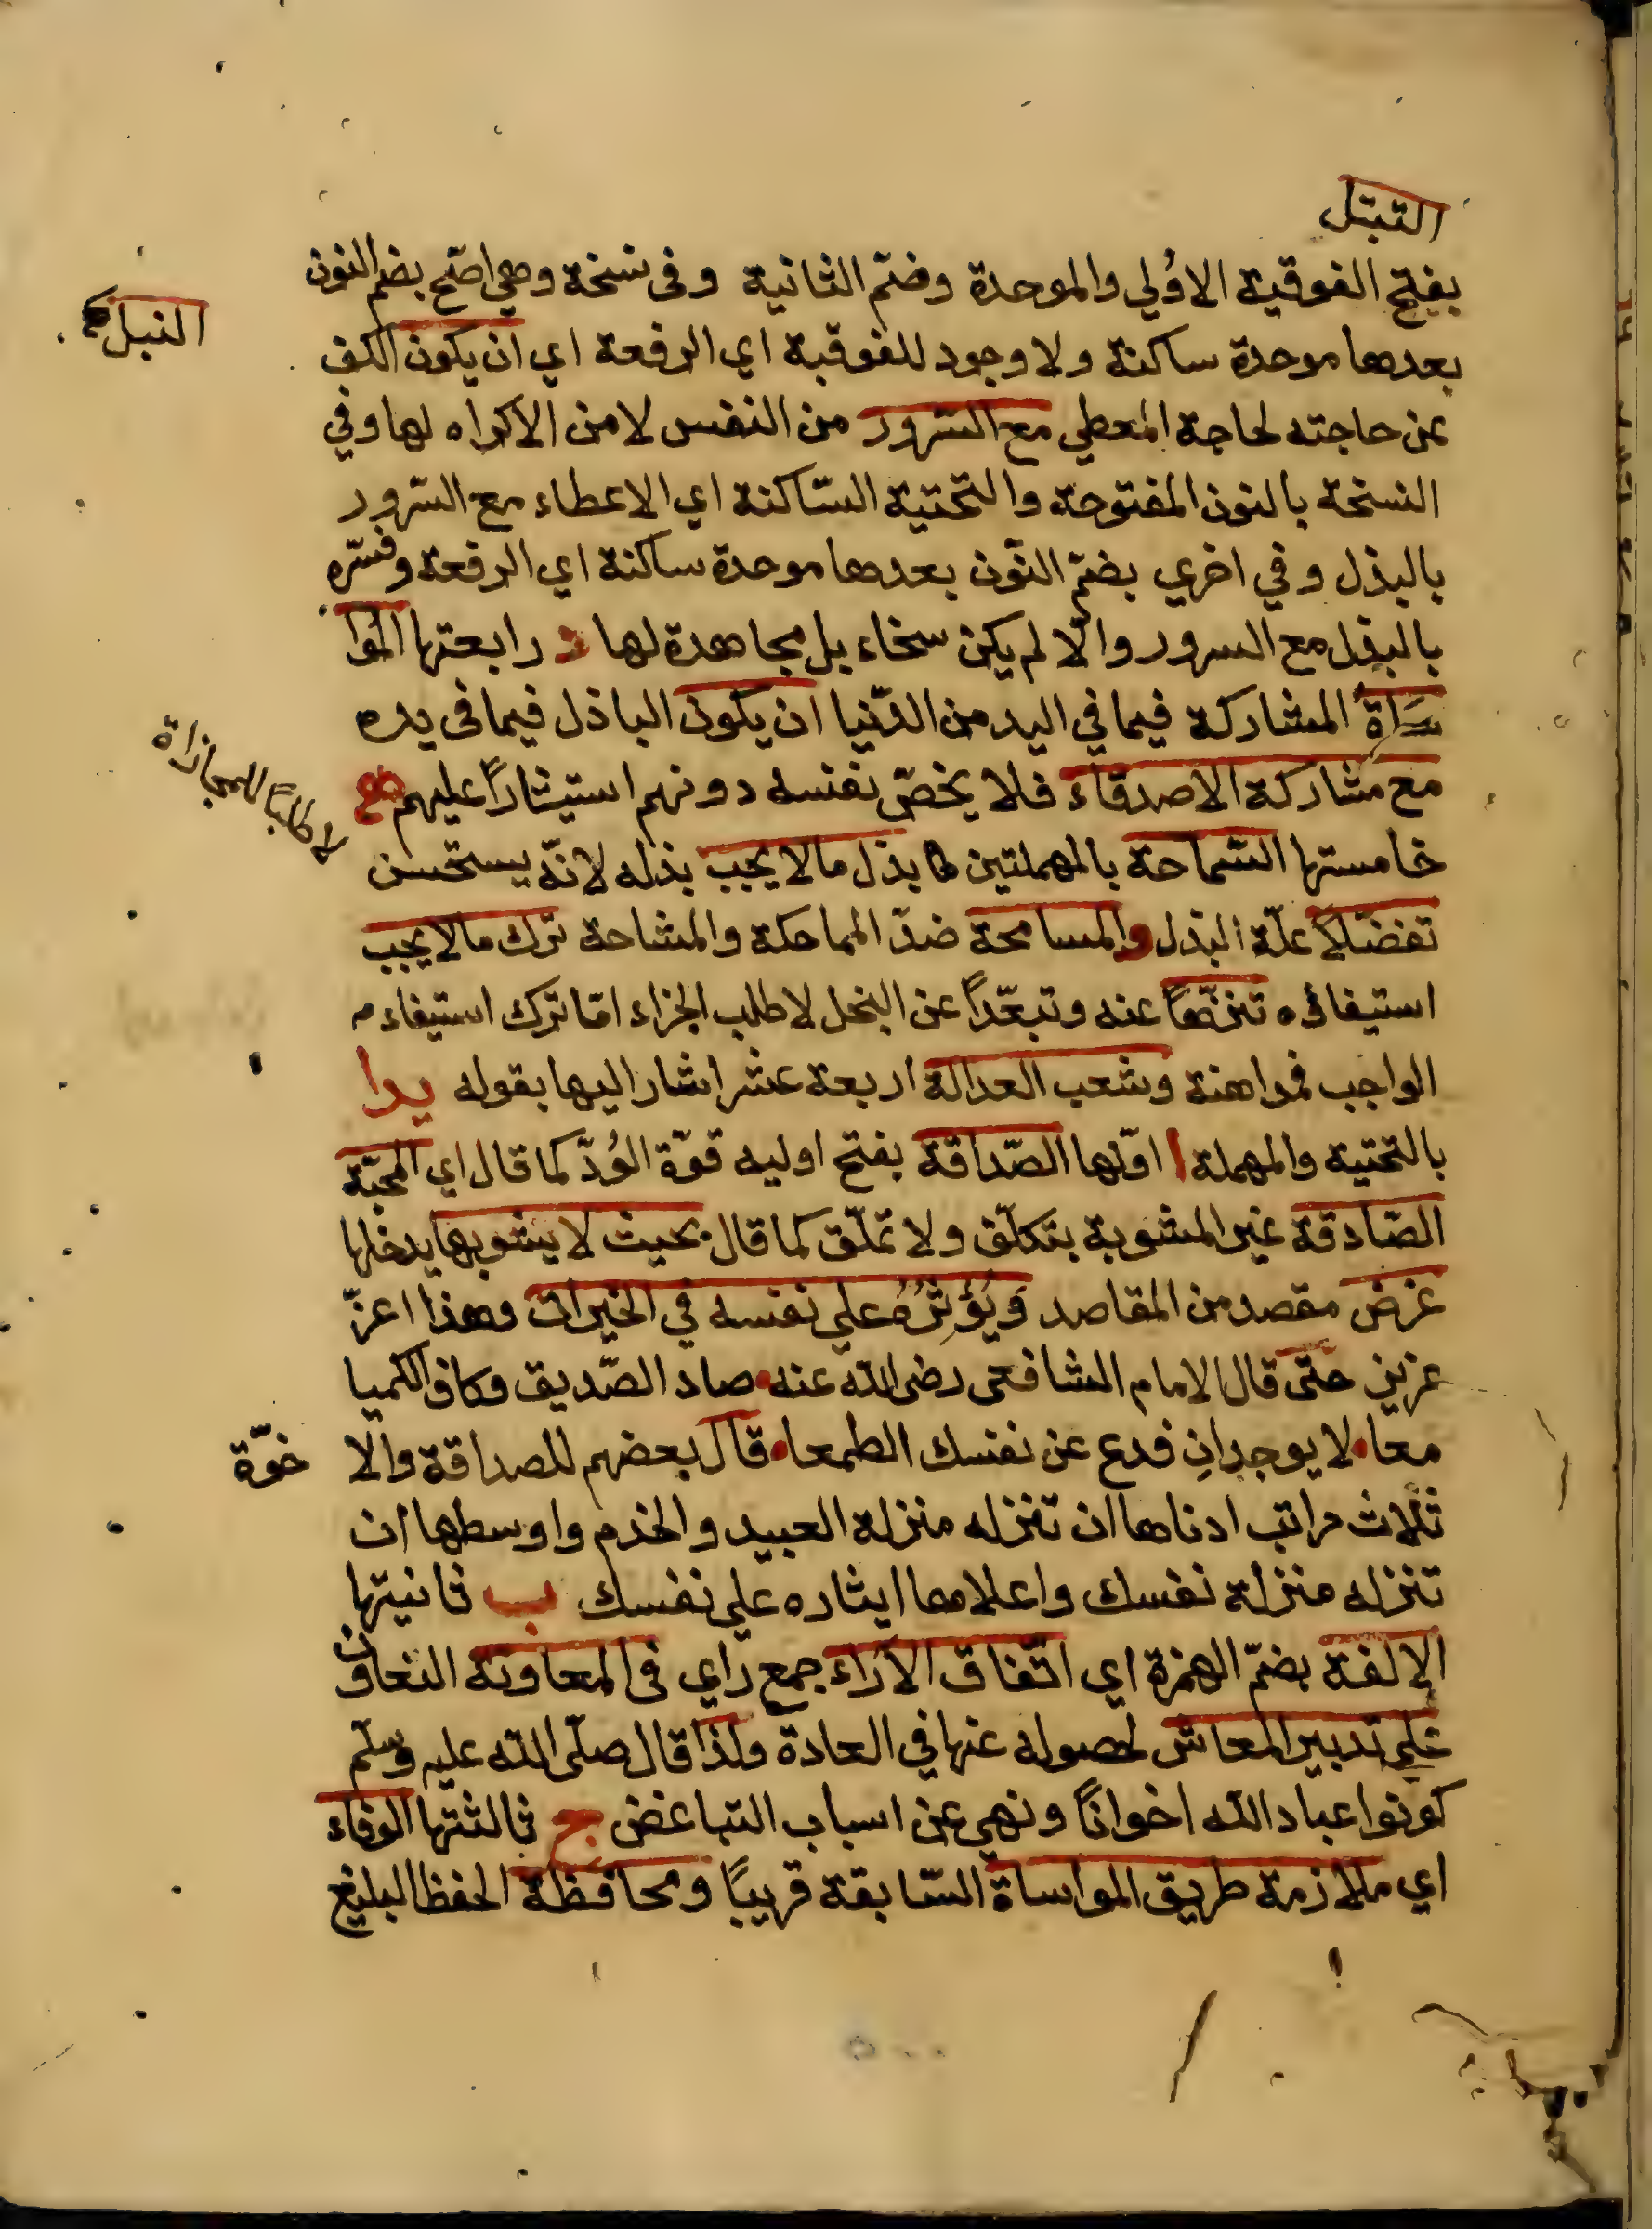 التبتل
بفتح الفوقية الاولي والموحدة وضم الثانية وفى نسخة وهي اصح بضم النون
النبل
بعدها موحدة ساكنة ولا وجود للفوقية اي الرفعة اي ان يكون الكف
عن حاجته لحاجة المعطي مع السرور من النفس لا من الاكراه لها وفي
النسخة بالنون المفتوحة والتحتية الساكنة اي الاعطاء مع السرور
بالبذل وفي اخري بضم النون بعدها موحدة ساكنة اي الرفعة وفسّره
بالبذل مع السرور والّا لم يكن سخاء بل مجاهدة لها د رابعتها الموا
ساة المشاركة فيما في اليد من الدّنيا ان يكون الباذل فيما فى يده
مع مشاركة الاصدقاء فلا يخصّ نفسه دونهم استيثاراً عليهم
لا طالبا للمجازاة
خامستها السّماحة بالمهملتين بذل ما لا يجب بذله لانّه يستحسن
تفضّلاً علّة البذل والمسامحة ضدّ المماحكة والمشاحة ترك ما لا يجب
استيفاؤه تنزّهاً عنه وتبعّداً عن البخل لا طلب الجزاء امّا ترك استيفاء
الواجب فمداهنة وشعب العدالة اربعة عشر اشار اليها بقوله يدا
بالتحتية والمهملة ا اوّلها الصّداقة بفتح اوليه قوّة الوُدّ كما قال اي المحبّة
الصّادقة غير المشوبة بتكلّف ولا تملّق كما قال بحيث لا يشوبها يدخلها
غرض مقصد من المقاصد ويُؤثِرُهُ علي نفسه في الخيرات وهذا اعزّ
عزيز حتّى قال الامام الشافعى رضى الله عنه صاد الصّديق وكاف الكميا
معا لا يوجدانِ فدع عن نفسك الطمعا قال بعضهم للصداقة والا
خوّة
ثلاث مراتب ادناها ان تنزله منزلة العبيد والخدم واوسطها ان
تنزله منزلة نفسك واعلاهما ايثاره علي نفسك ب ثانيتها
الالفة بضمّ الهمزة اي اتّفاق الآراء جمع راي فى المعاونة التعاون
علي تدبير المعاش لحصوله عنها في العادة ولذا قال صلّى الله عليه وسلّم
كونوا عباد الله اخوانًا ونهي عن اسباب التباغض ج ثالثتها الوفاء
اي ملازمة طريق المواساة السّابقة قريبًا ومحافظة الحفظ البليغ